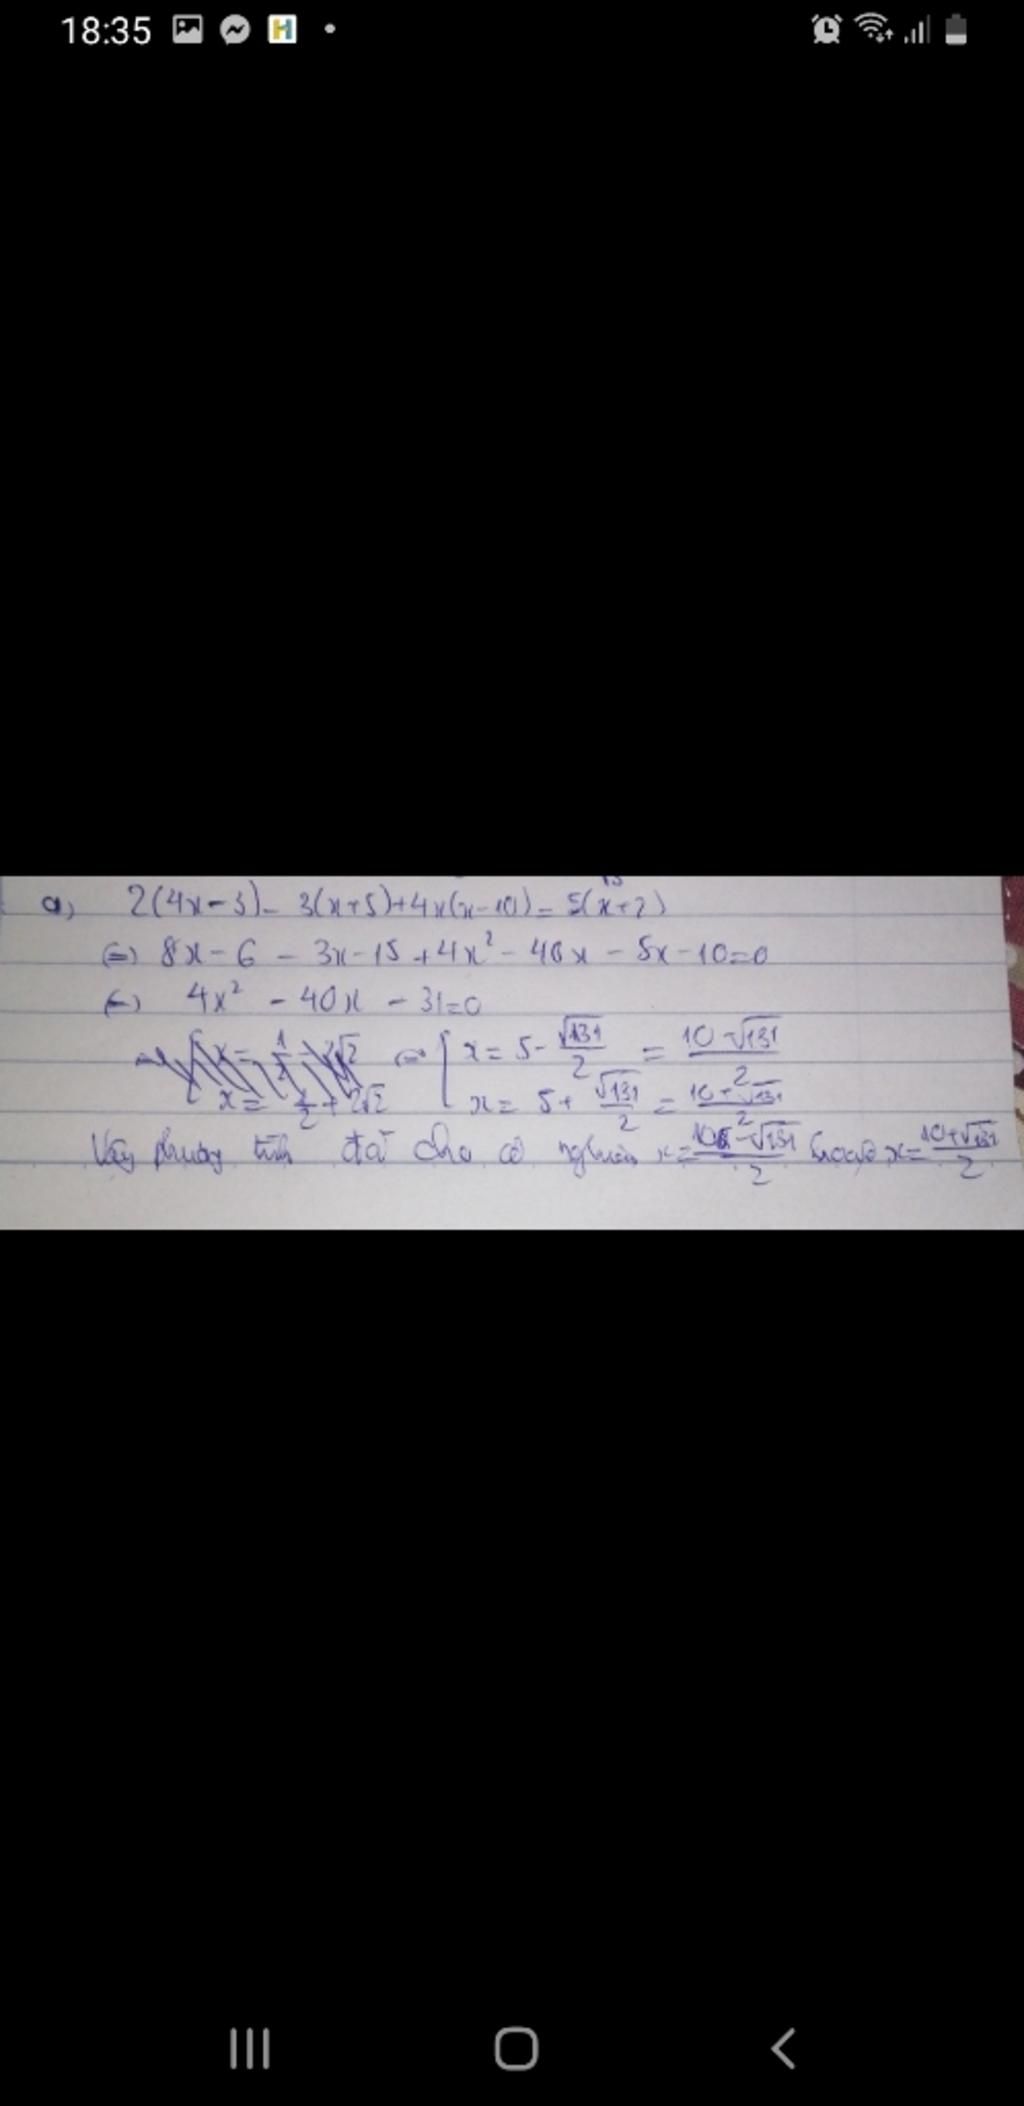 18:35
a) 2(4x-3)- 3(x+5)+4x(x-10)= 5(x+2)
(=) 8x-6 - 3x-15 +4x² - 40x - 5x-10=0
(=) 4x² - 40x - 31=0
x= 1/2 - 2√2 <=> [ x= 5- √131/2 = 10-√131/2
x= 1/2 + 2√2 x= 5+ √131/2 = 10+√131/2
Vậy phương trình đã cho có nghiệm x= 10-√131/2 hoặc x= 10+√131/2